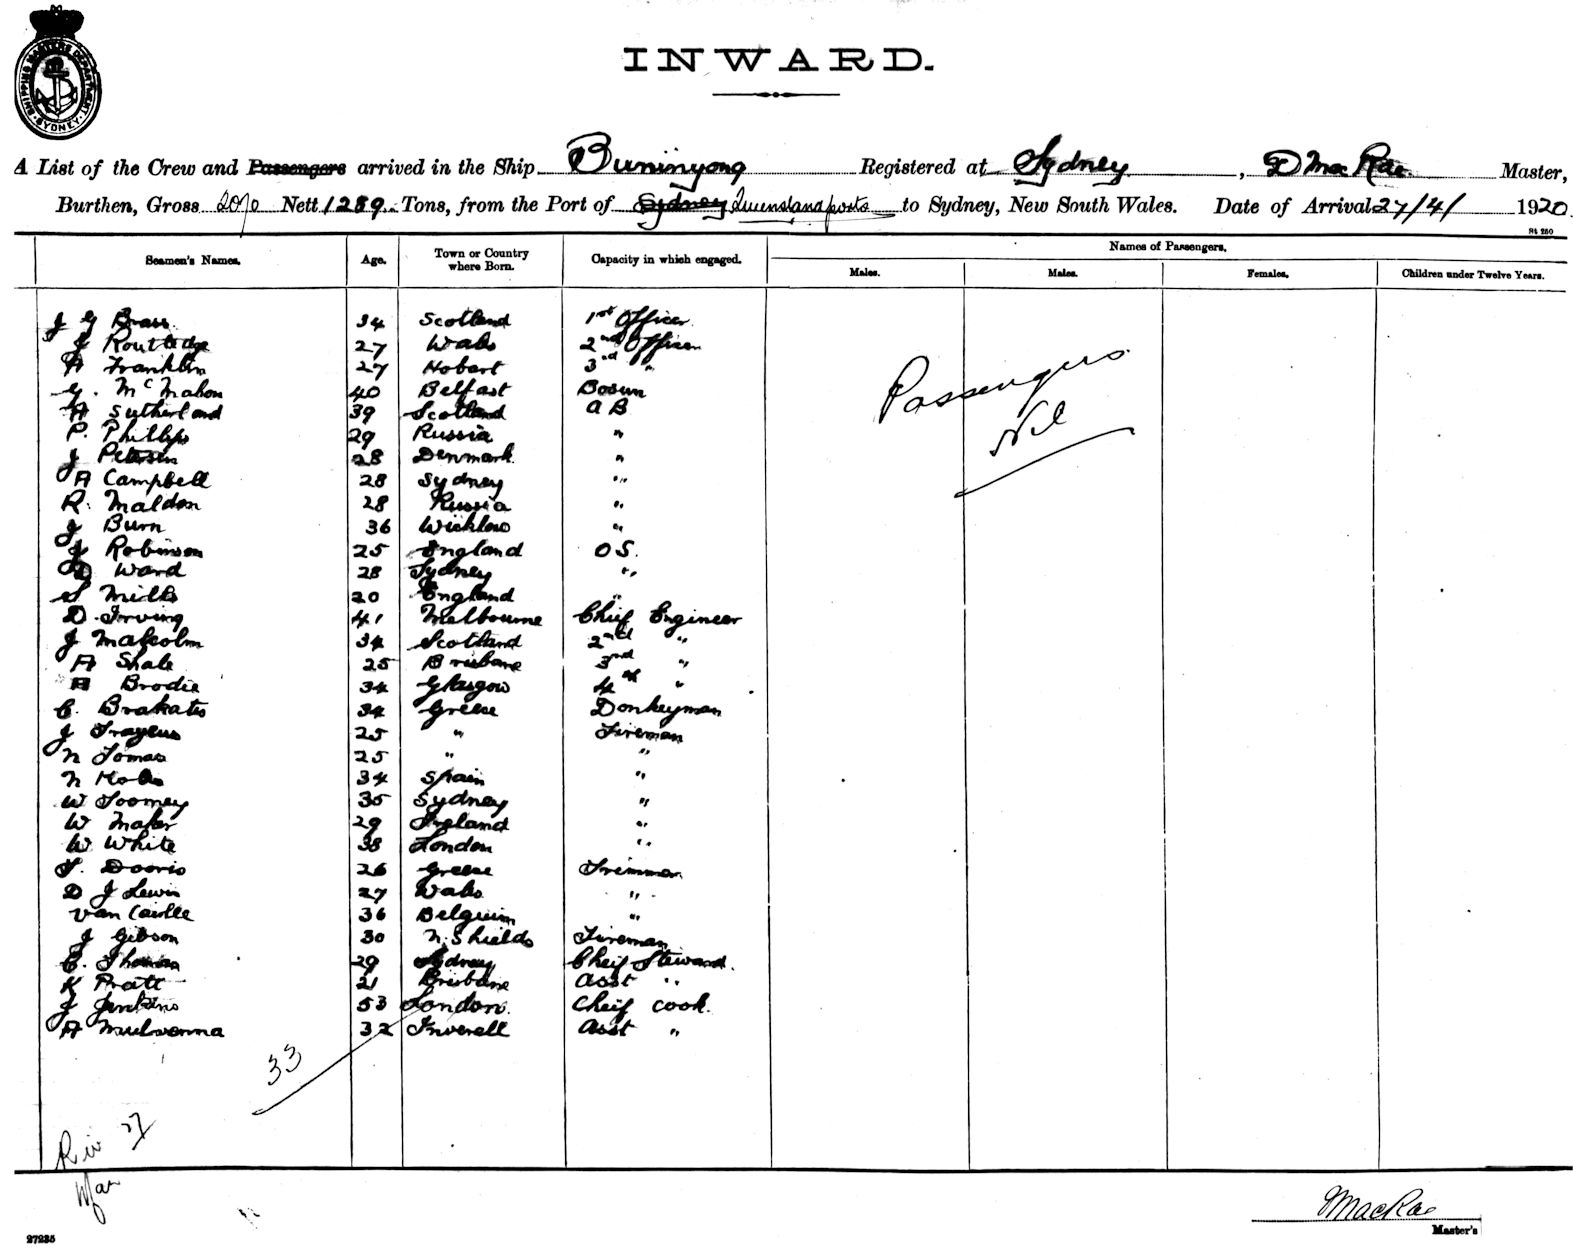 SHIPPING MASTERS DEPARTMENT SYDNEY
INWARD.
A List of the Crew and Passengers arrived in the Ship Buninyong Registered at Sydney, D MacRae Master,
Burthen, Gross 2070 Nett 1289 Tons, from the Port of Sydney Queensland ports to Sydney, New South Wales. Date of Arrival 27/4/ 1920.
St 250
Seamen's Names. Age. Town or Country where Born. Capacity in which engaged. Names of Passengers.
Males. Males. Females. Children under Twelve Years.
J G Brass 34 Scotland 1st Officer
J Routledge 27 Wales 2nd Officer
A Franklin 27 Hobart 3rd "
G. McMahon 40 Belfast Bosun
A Sutherland 39 Scotland A B
P. Phillips 29 Russia "
J Petersen 28 Denmark "
A Campbell 28 Sydney "
R. Maldon 28 Russia "
J Burn 36 Wicklow "
J Robinson 25 England O S.
D Ward 28 Sydney "
S Mills 20 England "
D. Irving 41 Melbourne Chief Engineer
J Malcolm 34 Scotland 2nd "
A Shale 25 Brisbane 3rd "
A Brodie 34 Glasgow 4th "
C. Brakatos 34 Greese Donkeyman
J 25 " Fireman
N Tomas 25 " "
N 34 Spain "
W Toomey 35 Sydney "
W Maher 29 Ireland "
W White 38 London "
T. Dooris 26 Greese Trimmer
D J Lewis 27 Wales "
Van 36 Belguim "
J Gibson 30 N. Shields Fireman
C. Thomas 29 Sydney Cheif Steward.
K Pratt 21 Brisbane Asst "
J Jenkins 53 London. Cheif cook.
A Mulvenna 32 Inverell Asst "
Passengers
Nil
33
27
MacRae
Master's
27235